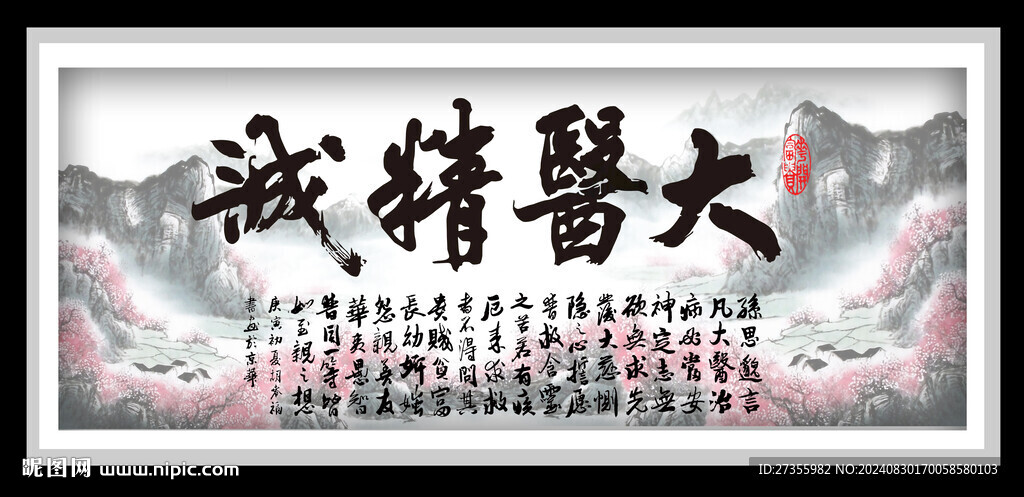 大醫精誠
花開富貴
孫思邈言
凡大醫治
病必當安
神定志無
欲無求先
發大慈惻
隐之心誓愿
普救含靈
之苦若有疾
厄来求救
者不得問其
貴賤貧富
長幼妍媸
怨親善友
華夷愚智
普同一等皆
如至親之想
庚寅初夏胡
書於京華
昵图网 www.nipic.com
ID:27355982 NO:20240830170058580103